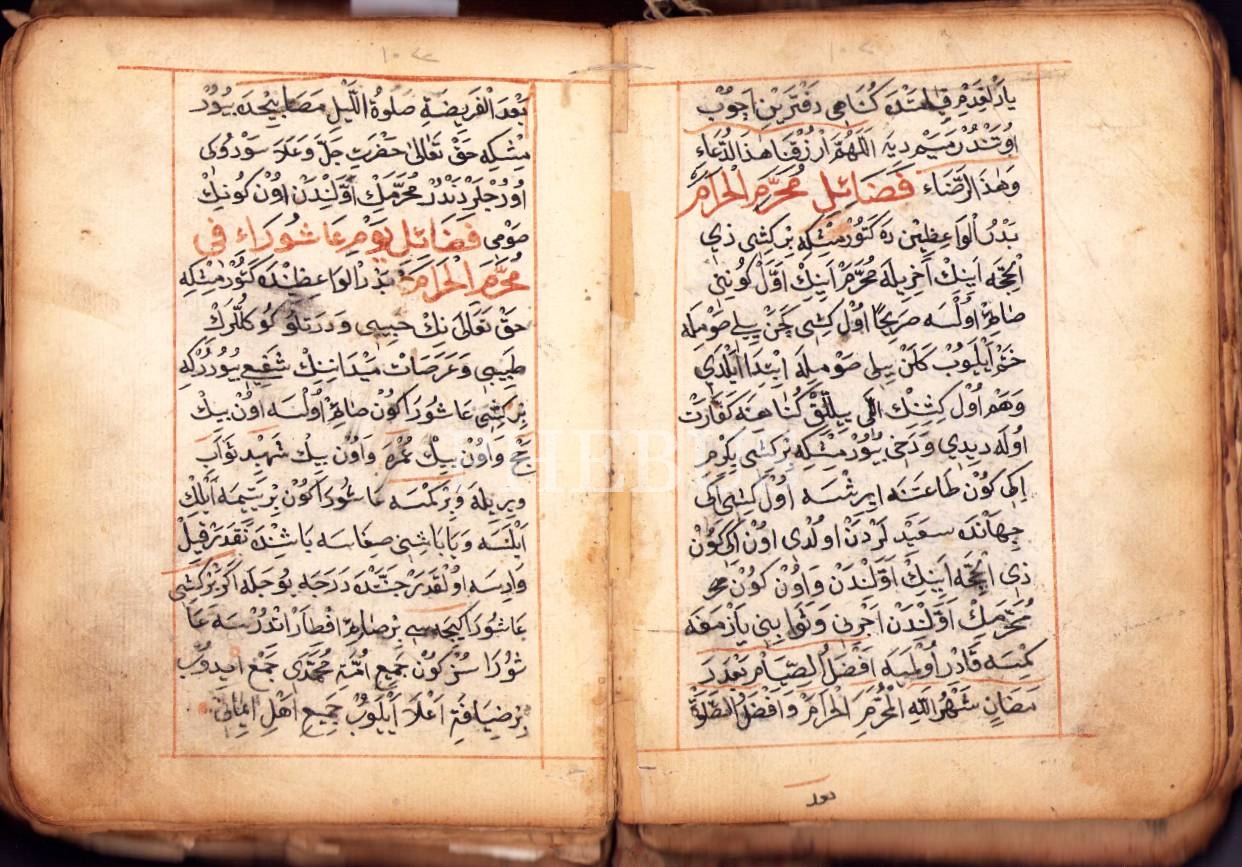 یازلغدم قیامتده كناهی دفترین اچوب
اوتندرمیم دیه اللهم ارزقنا هذا الدعاء
وهذا الرضاء فضائل محرم الحرام
بدر الواعظین ده كتورمشكه بر كشی ذی
الحجه اینك آخریله محرم اینك اول كوننی
صائم اولسه صریحا اول كشی كچن ییلی صومیله
ختم ایلیوب كلن ییلی صومیله ابتدا ایلدی
وهم اول كشینك اللی ییللق كناهنه كفارت
اوله دیدی ودخی بیورمشكه بر كشی یكرم
ایكی كون طاعتنه ایرشسه اول كشی ایكی
جهانده سعیدلردن اولدی اون ایكی كون
ذی الحجه اینك اولندن واون كون
محرمك اولندن اجرنی وثوابنی یازمغه
كمسه قادر اولمیه افضل الصیام بعد ر
مضان شهر الله المحرم الحرام وافضل الصلوة
بعد
بعد الفریضة صلوة اللیل مصابیحده بیور
مشكه حق تعالی حضرت جل وعلا سودوكی
اورجلردندر محرمك اولندن اون كونك
صومی فضائل یوم عاشوراء فی
محرم الحرام بدر الواعظنده كتورمشكه
حق تعالی نك حبیبی ودردلو كوكللرك
طبیبی وعرصات میداننك شفیعی بیوررکه
بر كشی عاشورا كون صائم اولسه اون بیك
حج واون بیك عمره واون بیك شهید ثواب
ویریله وبر كمسه عاشورا كون بر یتیمه ایلك
ایلسه ویا باشنی صغاسه باشنده نقدر قیل
وارسه اولقدر جنتده درجه یوجله اكر بر كشی
عاشورا كیجه سی بر صائم افطار اتدرسه عا
شورا سز كون جمیع امة محمدی جمع ایدوب
بر ضیافة اعلا ایلیوب جمیع اهل ایمانی
PHEBUS